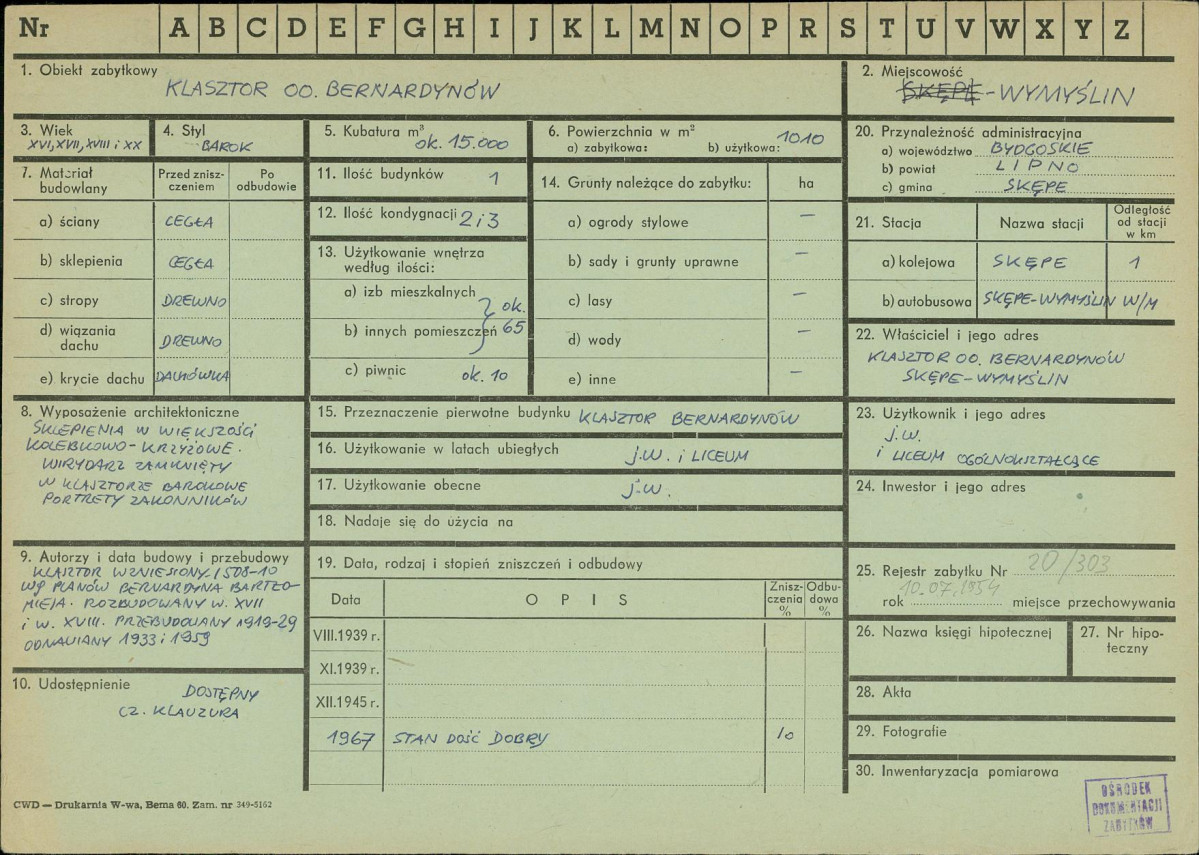 Nr A B C D E F G H I J K L M N O P R S T U V W X Y Z
1. Obiekt zabytkowy
KLASZTOR OO. BERNARDYNÓW
2. Miejscowość
SKĘPE-WYMYŚLIN
3. Wiek
XVI, XVII, XVIII i XX
4. Styl
BAROK
5. Kubatura m³
ok. 15.000
6. Powierzchnia w m²
a) zabytkowa: b) użytkowa: 1010
20. Przynależność administracyjna
a) województwo BYDGOSKIE
b) powiat LIPNO
c) gmina SKĘPE
7. Materiał budowlany
Przed zniszczeniem
Po odbudowie
a) ściany CEGŁA
b) sklepienia CEGŁA
c) stropy DREWNO
d) wiązania dachu DREWNO
e) krycie dachu DACHÓWKA
11. Ilość budynków 1
12. Ilość kondygnacji 2 i 3
13. Użytkowanie wnętrza
według ilości:
a) izb mieszkalnych
b) innych pomieszczeń
ok. 65
c) piwnic ok. 10
14. Grunty należące do zabytku: ha
a) ogrody stylowe —
b) sady i grunty uprawne —
c) lasy —
d) wody —
e) inne —
21. Stacja
Nazwa stacji
Odległość od stacji w km
a) kolejowa SKĘPE 1
b) autobusowa SKĘPE-WYMYŚLIN W/M
22. Właściciel i jego adres
KLASZTOR OO. BERNARDYNÓW
SKĘPE-WYMYŚLIN
8. Wyposażenie architektoniczne
SKLEPIENIA W WIĘKSZOŚCI
KOLEBKOWO-KRZYŻOWE.
WIRYDARZ ZAMKNIĘTY
W KLASZTORZE BAROKOWE
PORTRETY ZAKONNIKÓW
15. Przeznaczenie pierwotne budynku KLASZTOR BERNARDYNÓW
16. Użytkowanie w latach ubiegłych j.w. i LICEUM
17. Użytkowanie obecne j.w.
18. Nadaje się do użycia na
23. Użytkownik i jego adres
j.w.
i LICEUM OGÓLNOKSZTAŁCĄCE
24. Inwestor i jego adres
9. Autorzy i data budowy i przebudowy
KLASZTOR WZNIESIONY 1508-10
WG PLANÓW BERNARDYNA BARTŁO-
MIEJA. ROZBUDOWANY W. XVII
i W. XVIII. PRZEBUDOWANY 1919-29
ODNAWIANY 1933 i 1959
10. Udostępnienie
DOSTĘPNY
CZ. KLAUZURA
19. Data, rodzaj i stopień zniszczeń i odbudowy
Data
OPIS
Zniszczenia %
Odbudowa %
VIII.1939 r.
XI.1939 r.
XII.1945 r.
1967 STAN DOŚĆ DOBRY 10
25. Rejestr zabytku Nr 20/303
10.07.1954
rok miejsce przechowywania
26. Nazwa księgi hipotecznej
27. Nr hipo-
teczny
28. Akta
29. Fotografie
30. Inwentaryzacja pomiarowa
OŚRODEK
DOKUMENTACJI
ZABYTKÓW
CWD — Drukarnia W-wa, Bema 60. Zam. nr 349-5162